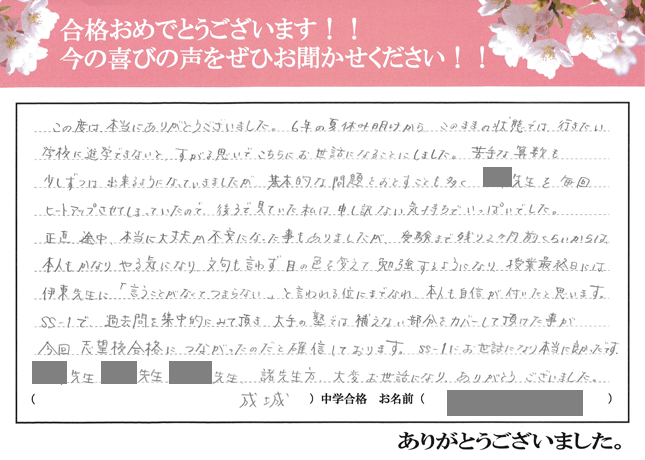 合格おめでとうございます！！
今の喜びの声をぜひお聞かせください！！
この度は、本当にありがとうございました。6年の夏休み明けから このままの状態では、行きたい
学校に進学できないと、すがる思いでこちらにお世話になることにしました。苦手な算数も
少しずつは出来るようになっていきましたが、基本的な問題をおとすことも多く 先生を毎回
ヒートアップさせてしまっていたので、後ろで見ていた私は申し訳ない気持ちでいっぱいでした。
正直 途中、本当に大丈夫か不安になった事もありましたが、受験まで残り2ヶ月前くらいからは、
本人もかなりやる気になり 文句も言わず 目の色を変えて 勉強するようになり 授業最終日には
伊東先生に「言うことがなくてつまらない。」と言われる位にまでなれ、本人も自信が付いたと思います。
SS-1で、過去問を集中的にみて頂き 大手の塾では 補えない部分をカバーして頂けた事が
今回 志望校合格につながったのだと確信しております。SS-1にお世話になり本当に助かったです。
先生 先生 先生、諸先生方、大変お世話になり、ありがとうございました。
（ 成城 ）中学合格 お名前（ ）
ありがとうございました。